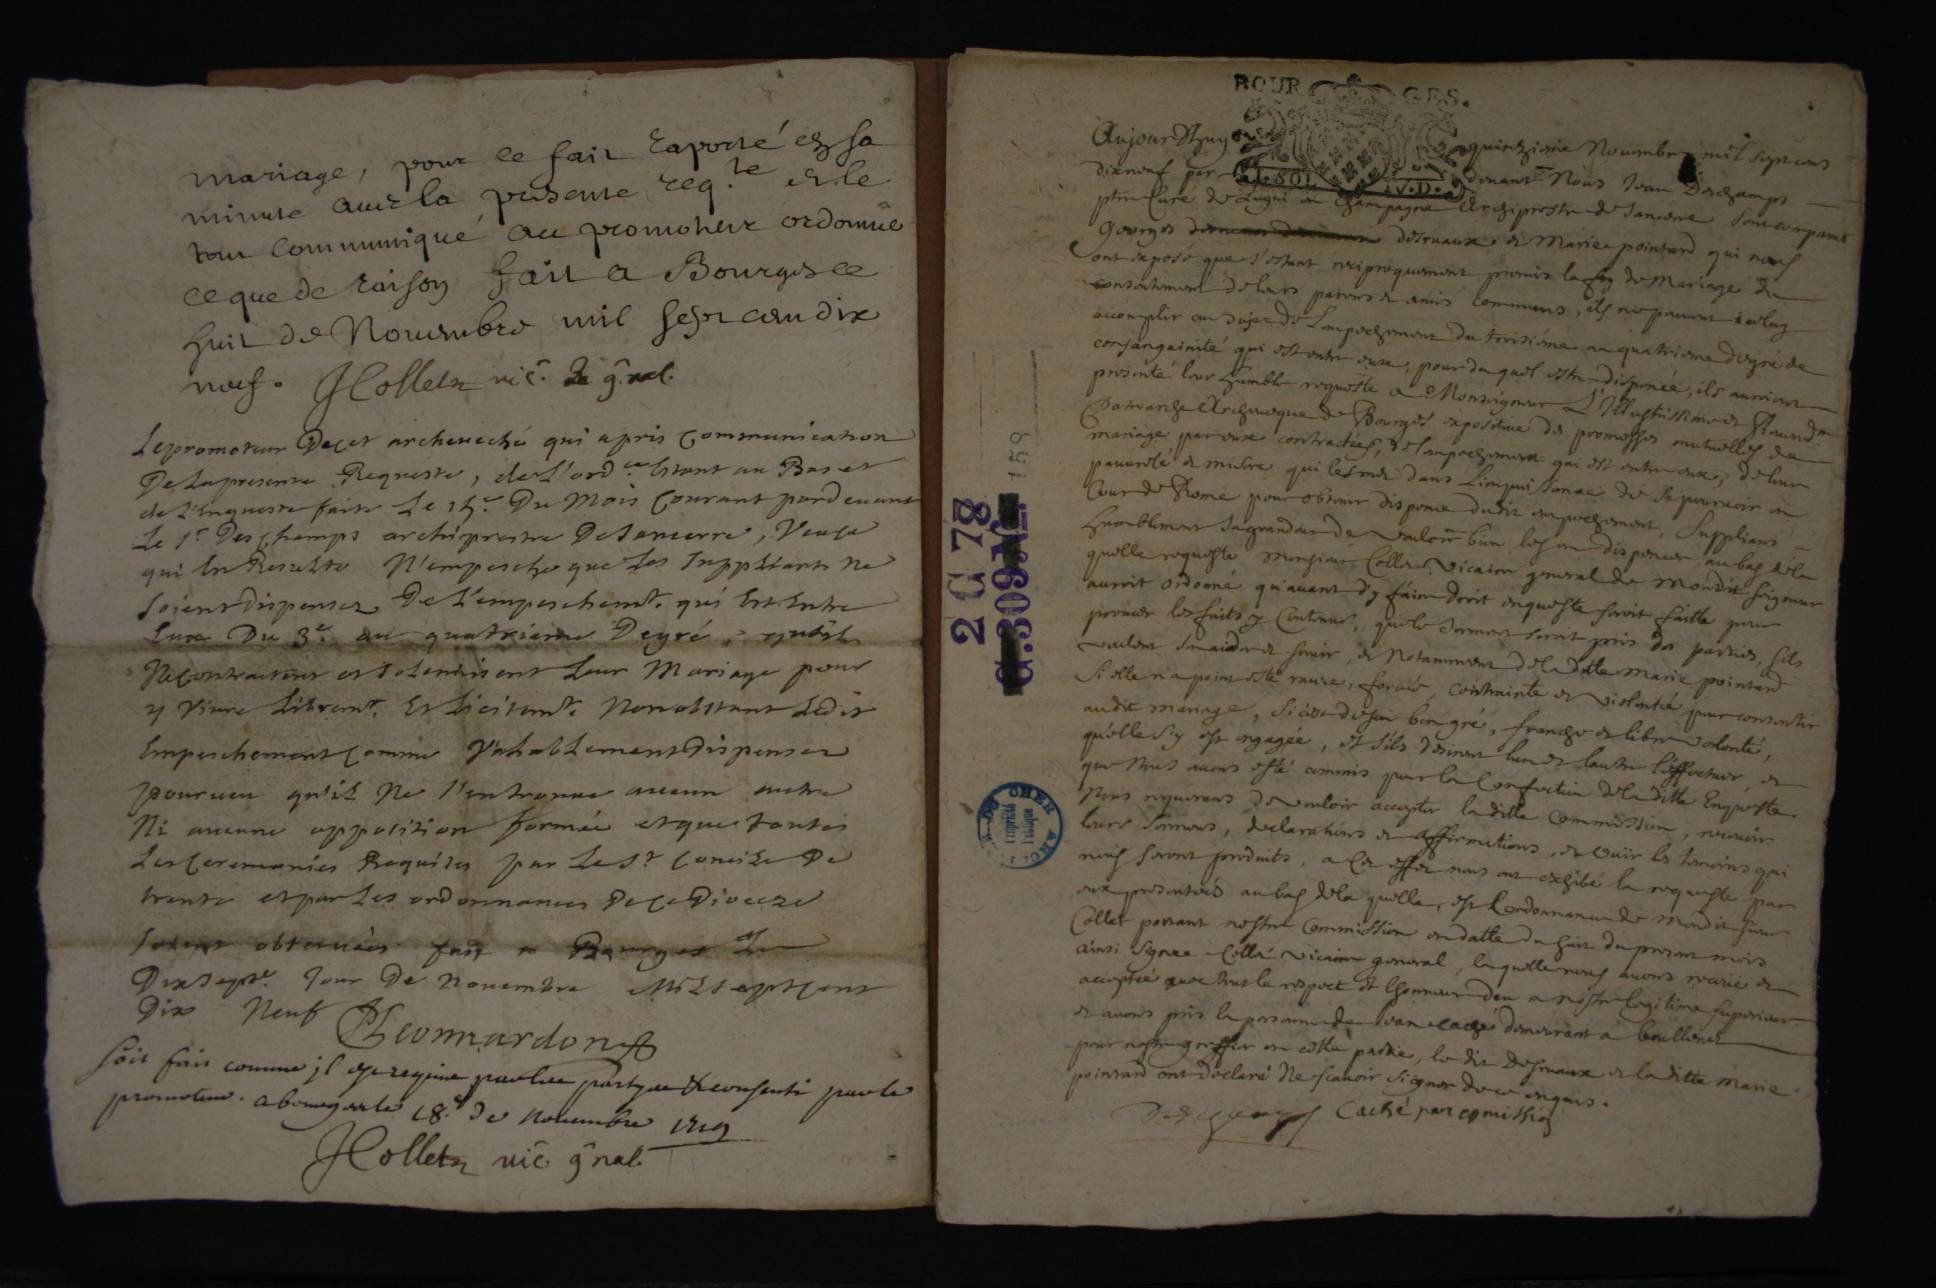 mariage, pour ce fait raporté et sa
minute avec la presente req.te estre
tout communiqué au promoteur ordonné
ce que de raison fait a Bourges ce
huit de Novembre mil sept cens dix
neuf. JCollet vic. gnal.
Le promoteur De cet archeveché qui a pris Communication
De La presente Requeste, de L'ord.ce Estant au Bas et
de L'Enqueste faite Le 15.e Du Mois Courant pardevant
Le Sr. Des Champs archiprestre De Sancerre, Veu ce
qui En Resulte N'empesche que Les Suppliants Ne
Soient Dispenser De L'empeschemt. qui Est Entre
Eux Du 3e. au quatrieme Degré, qu'ils
Ne Contractent et Solennisent Leur Mariage pour
y Vivre Libremt. Et Licitemt. Nonobstant Ledit
Empeschement Comme Valablement Dispenser
pourveu qu'il Ne s'en trouve aucun autre
Ni aucune opposition formée et que toutes
Les Ceremonies Requises par Le St. Concile De
trente et par Les ordonnances De Ce Dioceze
Soient observées fait a Bourges Le
Dix Sept.e Jour De Novembre Mil Sept Cent
Dix Neuf
Soit fait comme jl est requis par les partyes & consenti par le
promoteur. a bourges le 18.e de novembre 1719
JCollet vic. gnal.
BOURGES.
Aujourdhuy quinziéme Novembre mil sept cens
dixneuf par devant Nous Jean Deschamps
ptre Curé de Sugni en Champagne Archiprestre de Sancerre Sont comparus
Georges desruaux et Marie pointard qui nous
ont exposé que s'estant reciproquement promis la foy de Mariage du
consentement de leurs parens et amis communs, ils ne peuvent icelluy
accomplir au sujet de L'empeschement du troisiéme au quatriéme degré de
consanguinité qui est entre eux, pour du quel estre dispensé, ils auroient
presenté leur humble requeste a Monseigneur L'Illustrissime et Reverend.me
Patriarche Archevesque de Bourges expositive des promesses mutuelles de
mariage par eux contractées, de L'empeschement qui est entre eux, de leur
pauvreté et misere qui les met dans L'impuissance de se pourvoir en
Cour de Rome pour obtenir dispense dudit empeschement, Supplians
humblement sa grandeur de vouloir bien les en dispenser, au bas de la
quelle requeste Monsieur Collet Vicaire general de Mondit Seigneur
auroit ordonné qu'avant d'y faire droit enqueste seroit faitte pour
prouver les faits y Contenus, que le serment seroit pris des parties, s'ils
veulent s'en aider et servir, et Notamment de la ditte Marie pointard
Si elle n'a point esté ravie, forcée, contrainte et violentée pour consentir
audit mariage, Si c'est de son bon gré, franche et libre volonté,
qu'elle s'y est engagée, et s'ils desirent l'un et l'autre l'effectuer, et
que Nous avons esté commis pour la Confection de la ditte Enqueste
Nous requerans de vouloir accepter la ditte Commission, recevoir
leurs sermens, declarations et affirmations, et Ouïr les temoins qui
nous seront produits, a Cet effet nous ont exhibé la requeste par
eux presentée au bas de la quelle, est L'ordonnance de Mondit sieur
Collet portant nostre Commission en datte du huit du present mois
ainsi signée Collet Vicaire general, laquelle nous avons receüe et
acceptée avec tout le respect et l'honneur deu a nostre legitime superieur
et avons pris la personne de Jean Caché demeurant a boulleret
pour nostre greffier en cette partie, le dit Desruaux et la ditte Marie
pointard ont declaré Ne scavoir signer de ce enquis.
Deschamps Caché par comission
2 G 78
G.309
159
CHER